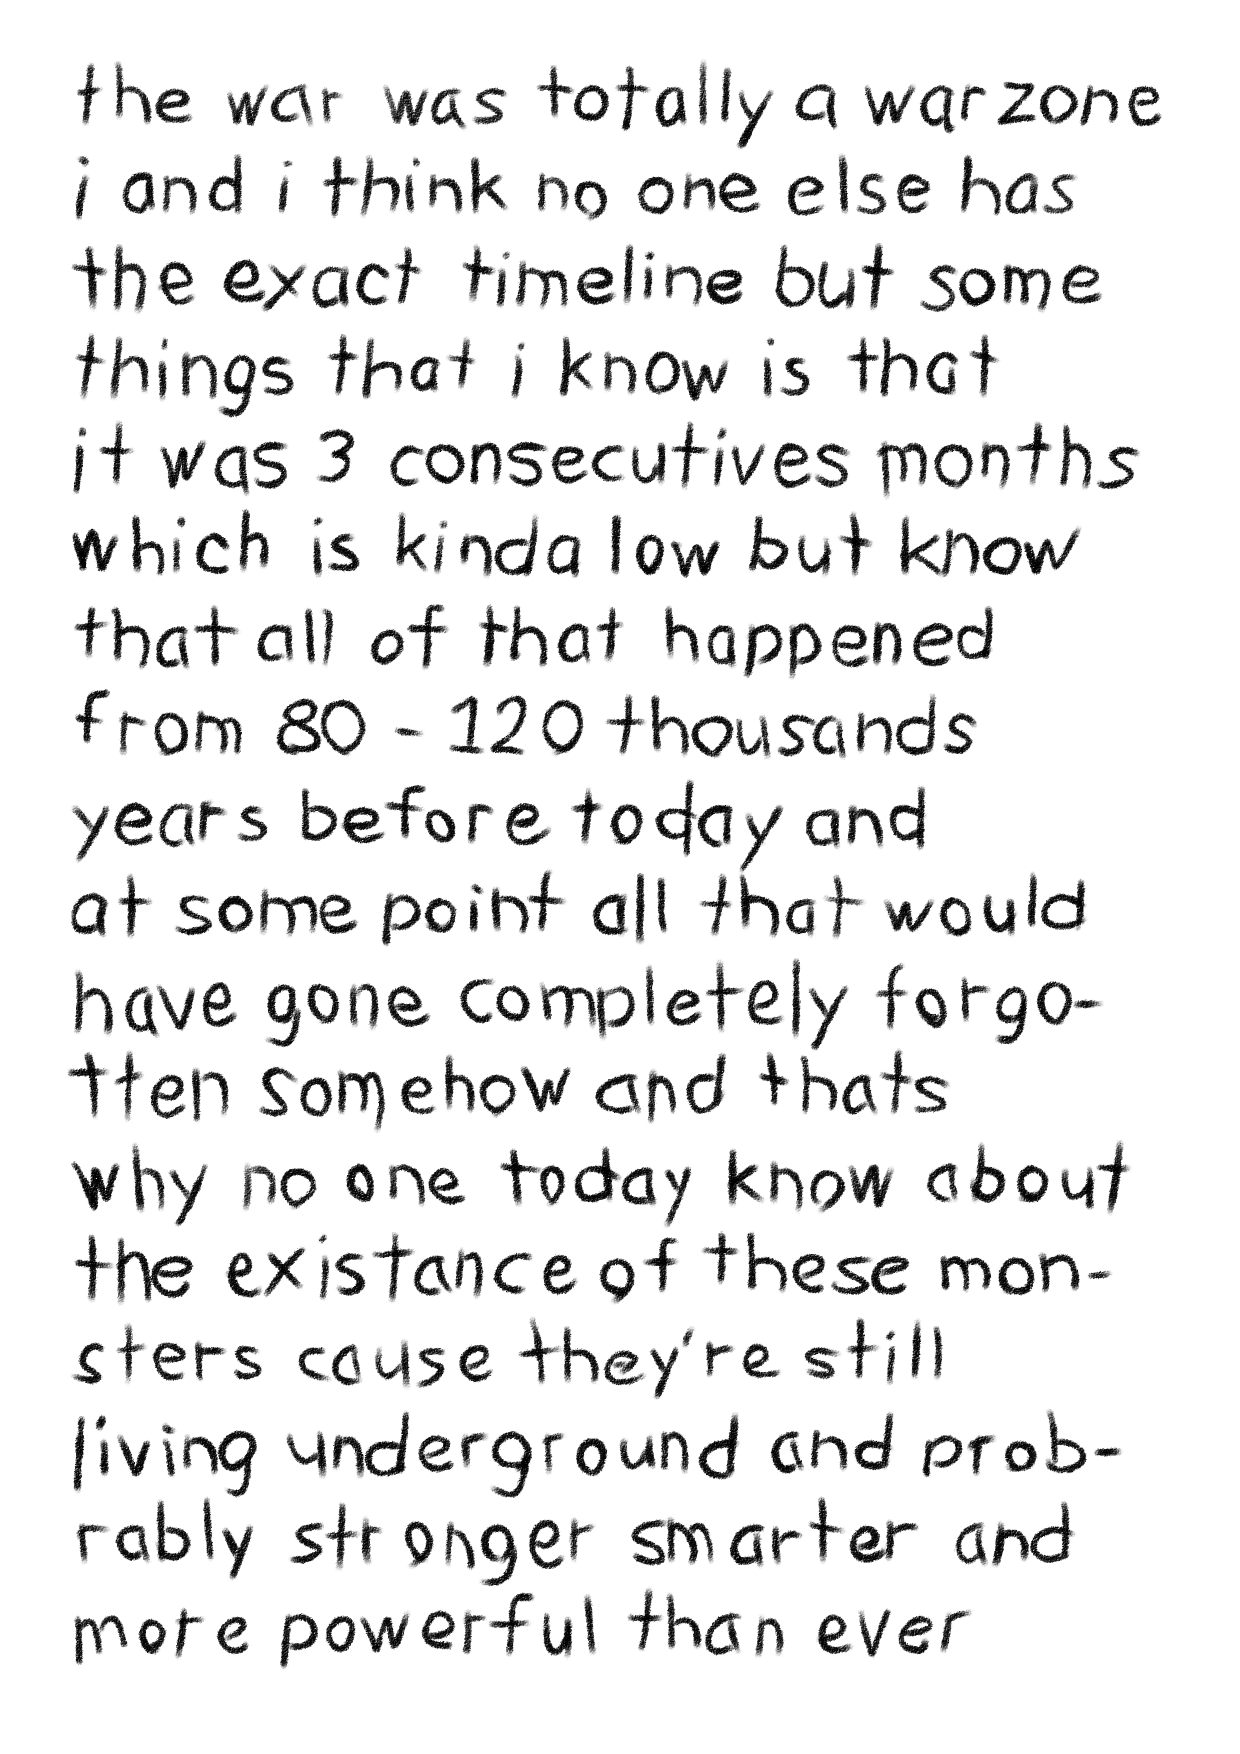 the war was totally a warzone
i and i think no one else has
the exact timeline but some
things that i know is that
it was 3 consecutives months
which is kinda low but know
that all of that happened
from 80 - 120 thousands
years before today and
at some point all that would
have gone completely forgo-
tten somehow and thats
why no one today know about
the existance of these mon-
sters cause they're still
living underground and prob-
rably stronger smarter and
more powerful than ever